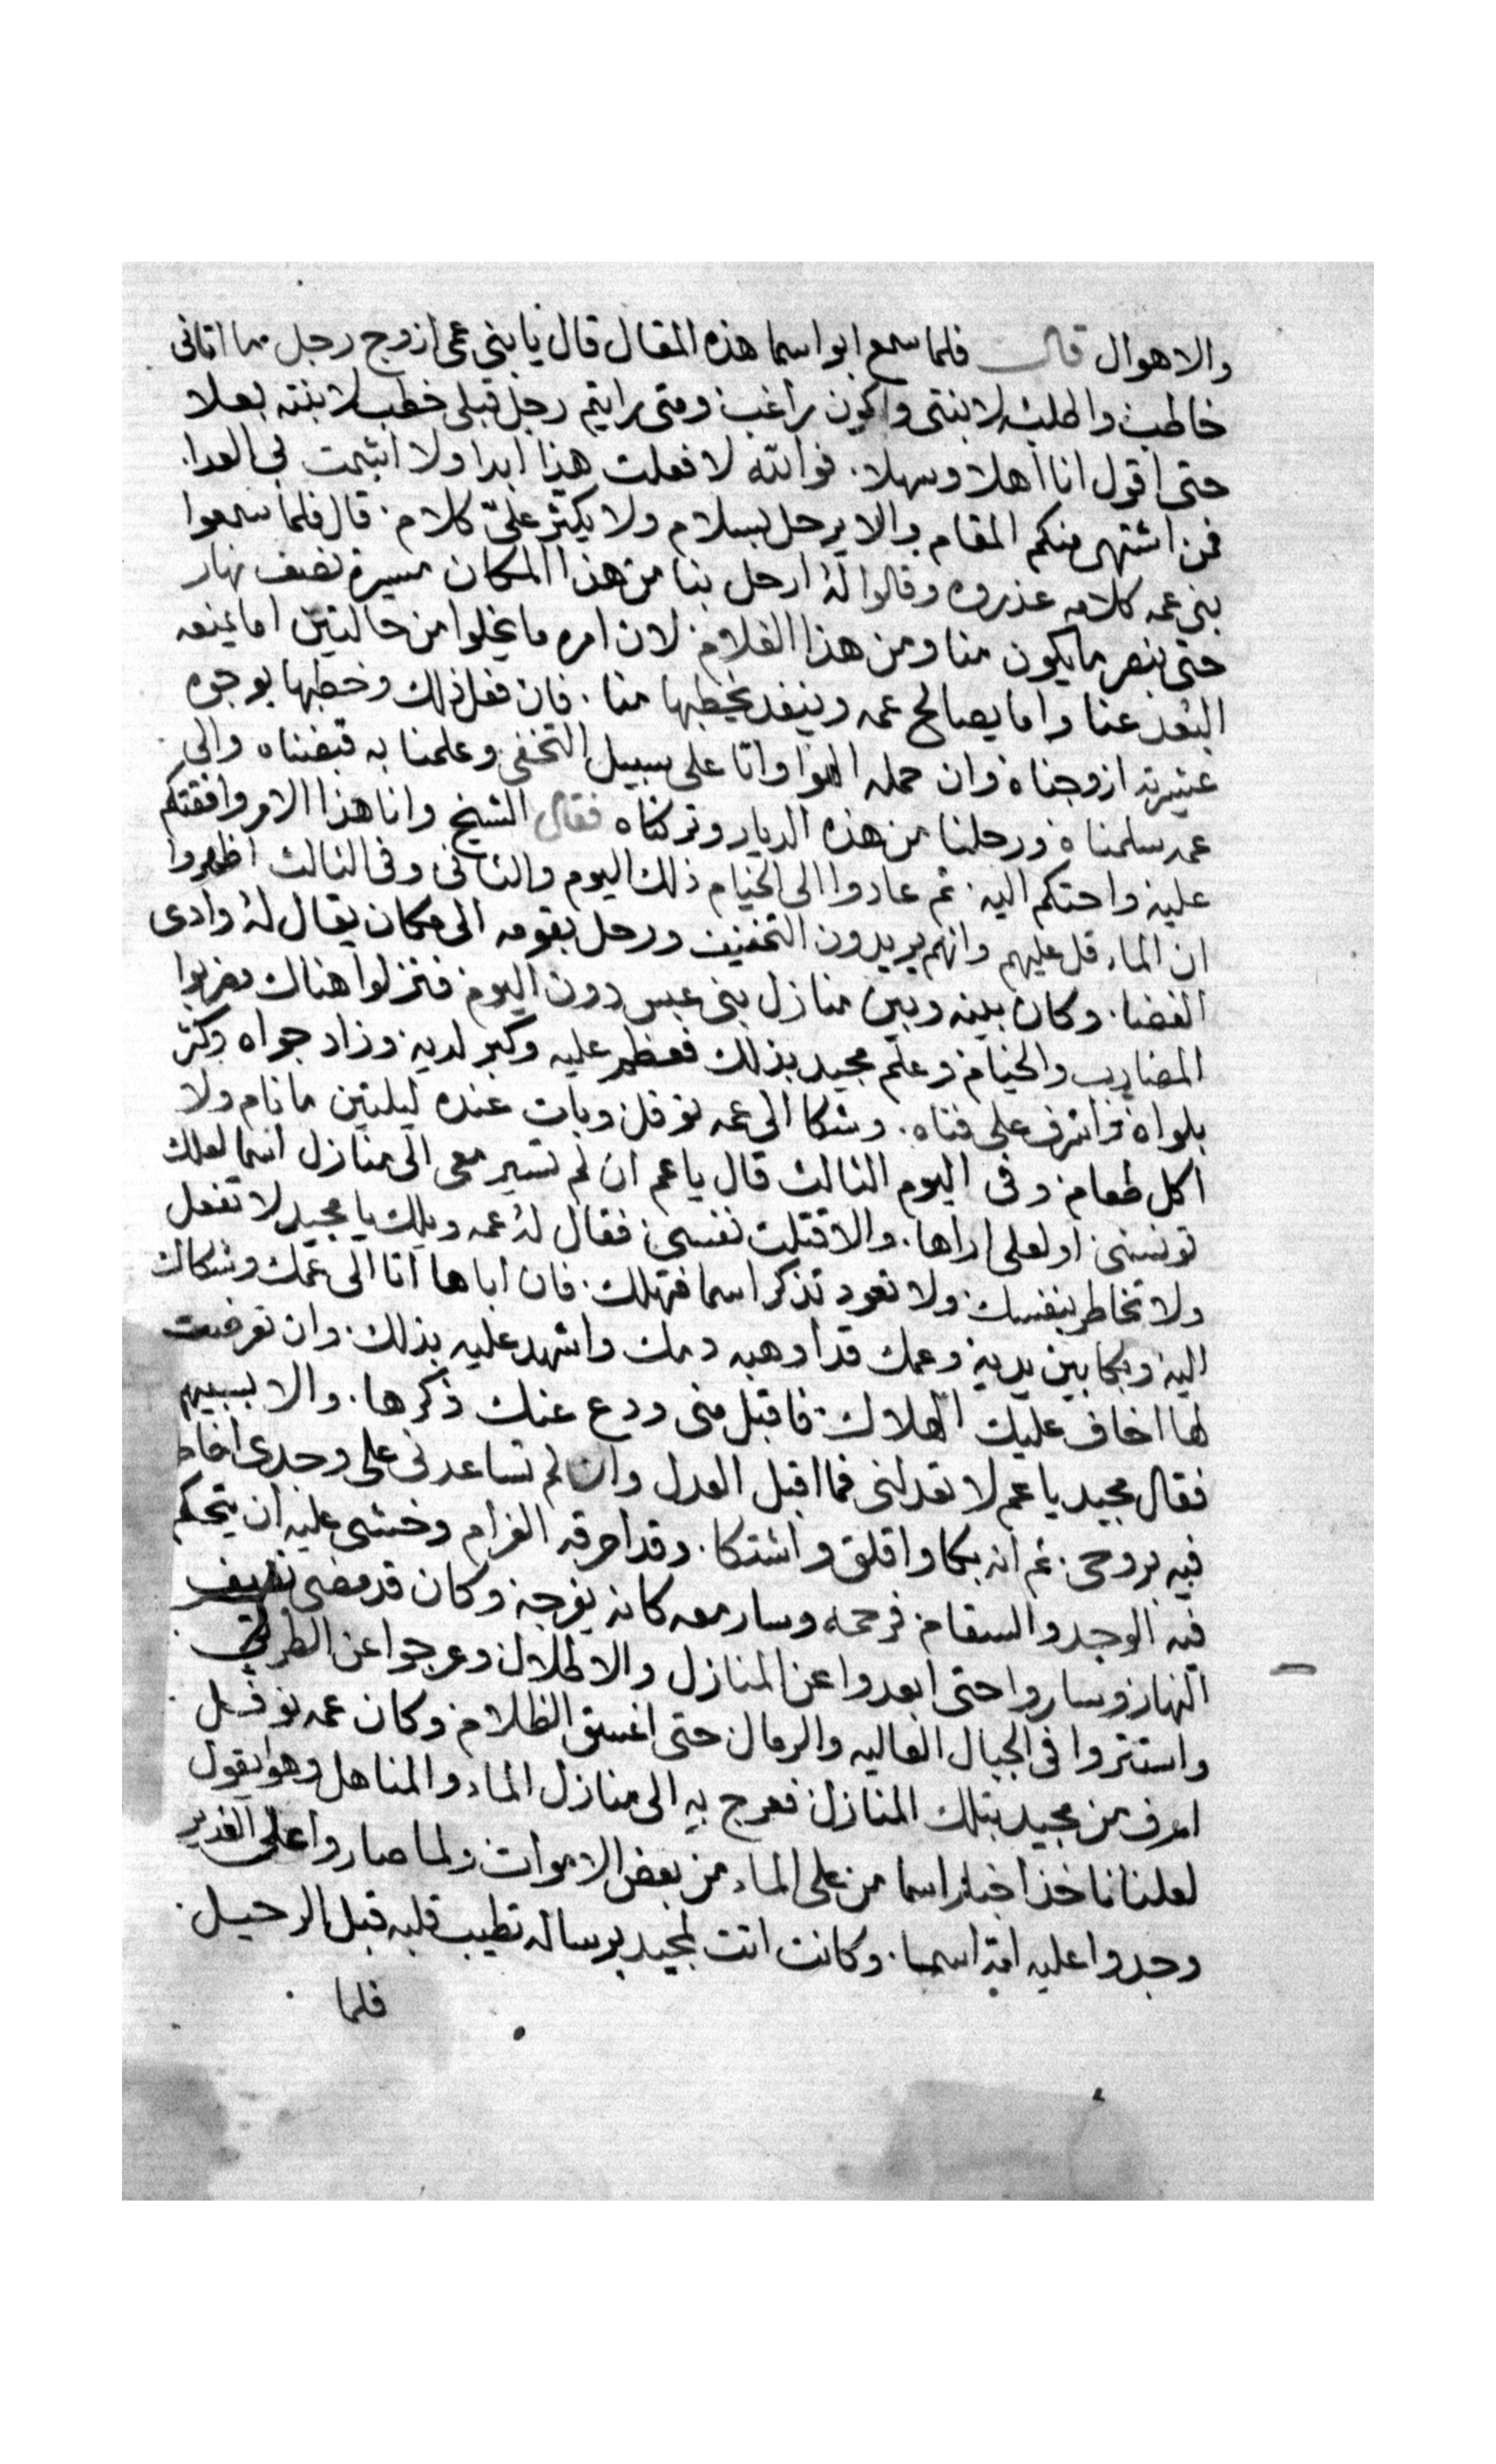 والاهوال قال فلما سمع ابو اسما هذه المقال قال يا بني عمي ازوج رجل ما اتاني
خاطب واطلبه لابنتي واكون راغب ومتى رايتم رجل قبلي خطب لابنته بعلا
حتى اقول انا اهلا وسهلا. فوالله لا فعلت هذا ابدا ولا اشمت بي العدا.
فمن اشتهى منكم المقام والا يرحل بسلام ولا يكثر عليّ كلام قال فلما سمعوا
بني عمه كلامه عذروه وقالوا له ارحل بنا من هذا المكان مسيرة نصف نهار
حتى ننصر ما يكون منا ومن هذا الغلام لان امره ما يخلوا من حالتين اما يمنعه
البعد عنا واما يصالح عمه وينفد يخطبها منا. فان فعل ذلك وخطبها بوجوه
عشيرته ازوجناه وان حمله الهوا واتا على سبيل التخفي وعلمنا به قبضناه والى
عمه سلمناه ورحلنا من هذه الديار وتركناه فقال الشيخ وانا هذا الامر وافقتكم
عليه واحتكم اليه ثم عادوا الى الخيام ذلك اليوم والثاني وفي الثالث اظهروا
ان الماء قل عليهم وانهم يريدون التخفيف ورحل بقومه الى مكان يقال له وادى
الغضا. وكان بينه وبين منازل بني عبس دون اليوم فنزلوا هناك وضربوا
المضارب والخيام وعلم مجيد بذلك فعظم عليه وكبر لديه وزاد جواه وكثر
بلواه واشرف على فناه. وشكا الى عمه نوفل وبات عنده ليلتين ما نام ولا
اكل طعام وفي اليوم الثالث قال يا عم ان لم تسير معي الى منازل اسما لعلك
تونسني او لعلي اراها. والا قتلت نفسي فقال له عمه ويلك يا مجيد لا تفعل
ولا تخاطر بنفسك ولا تعود تذكر اسما فتهلك. فان اباها اتا الى عمك وشكاك
اليه وبكا بين يديه وعمك قد اوهبه دمك واشهد عليه بذلك وان تعرضت
لها اخاف عليك الهلاك فاقبل مني ودع عنك ذكرها. والا بسببهم
فقال مجيد يا عم لا تعدلني فما اقبل العدل وان لم تساعدني على وجدي اخاطر
فيه بروحي. ثم انه بكا واقلق واشتكا. وقد احرقه الغرام وخشي عليه ان يتحكم
فيه الوجد والسقام فرحمه وسار معه كانه يفرجه وكان قد مضى نصيف
النهار وساروا حتى ابعدوا عن المنازل والاطلال وعرجوا عن الطريق
واستتروا في الجبال العاليه والرمال حتى اغسق الظلام وكان عمه نوفل
اعرف من مجيد بتلك المنازل فعرج به الى منازل الماء والمناهل وهو يقول
لعلنا ناخذ اخبار اسما من على الماء من بعض الاموات ولما صاروا على الغدير
وجدوا عليه امة اسما. وكانت اتت لمجيد برساله تطيب قلبه قبل الرحيل.
فلما